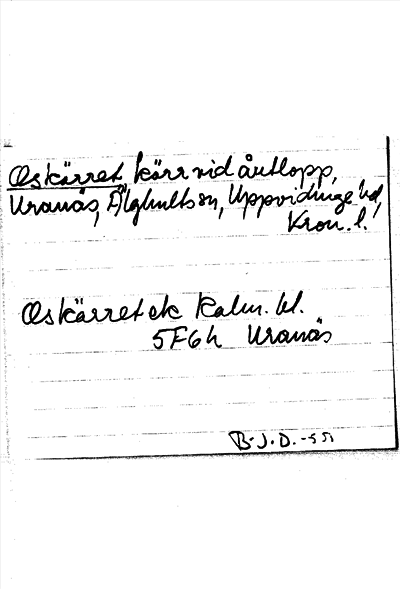 Oskärret kärr vid åutlopp,
Uranäs, Älghults sn, Uppvidinge hd,
Kron. l.
Oskärret ek Kalm. bl.
5F6h Uranäs
B.J.D. -55